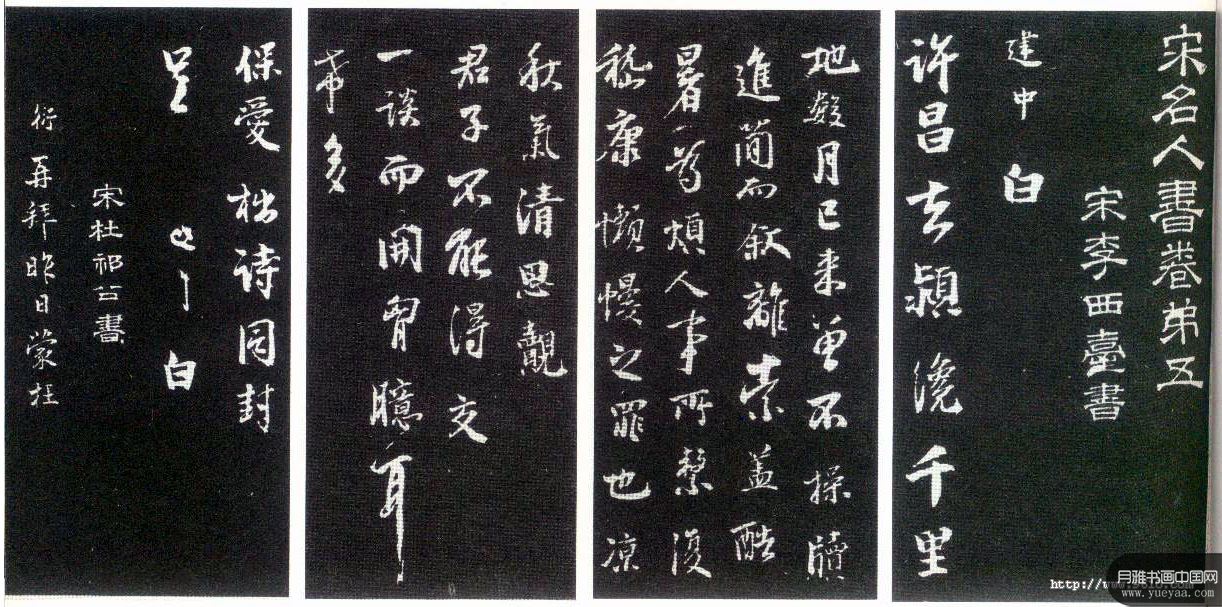 宋名人書卷第五
宋李西臺書
建中 白
许昌去潁 才千里
地数月已来曾不操牘
進简而叙離索盖酷
暑為煩人事所縈復
嵇康懶慢之罪也凉
秋氣清思覩
君子不能得交
一談而開胷臆耳
希多
保愛 拙詩同封
呈 白
宋杜祁公書
衍再拜昨日蒙枉
http://w
月雅书画中国网
www.yueyaa.com